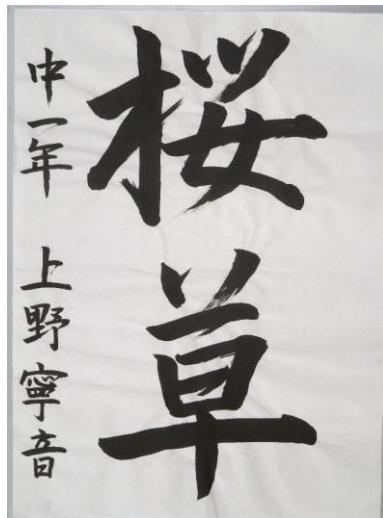 桜草
中一年 上野寧音